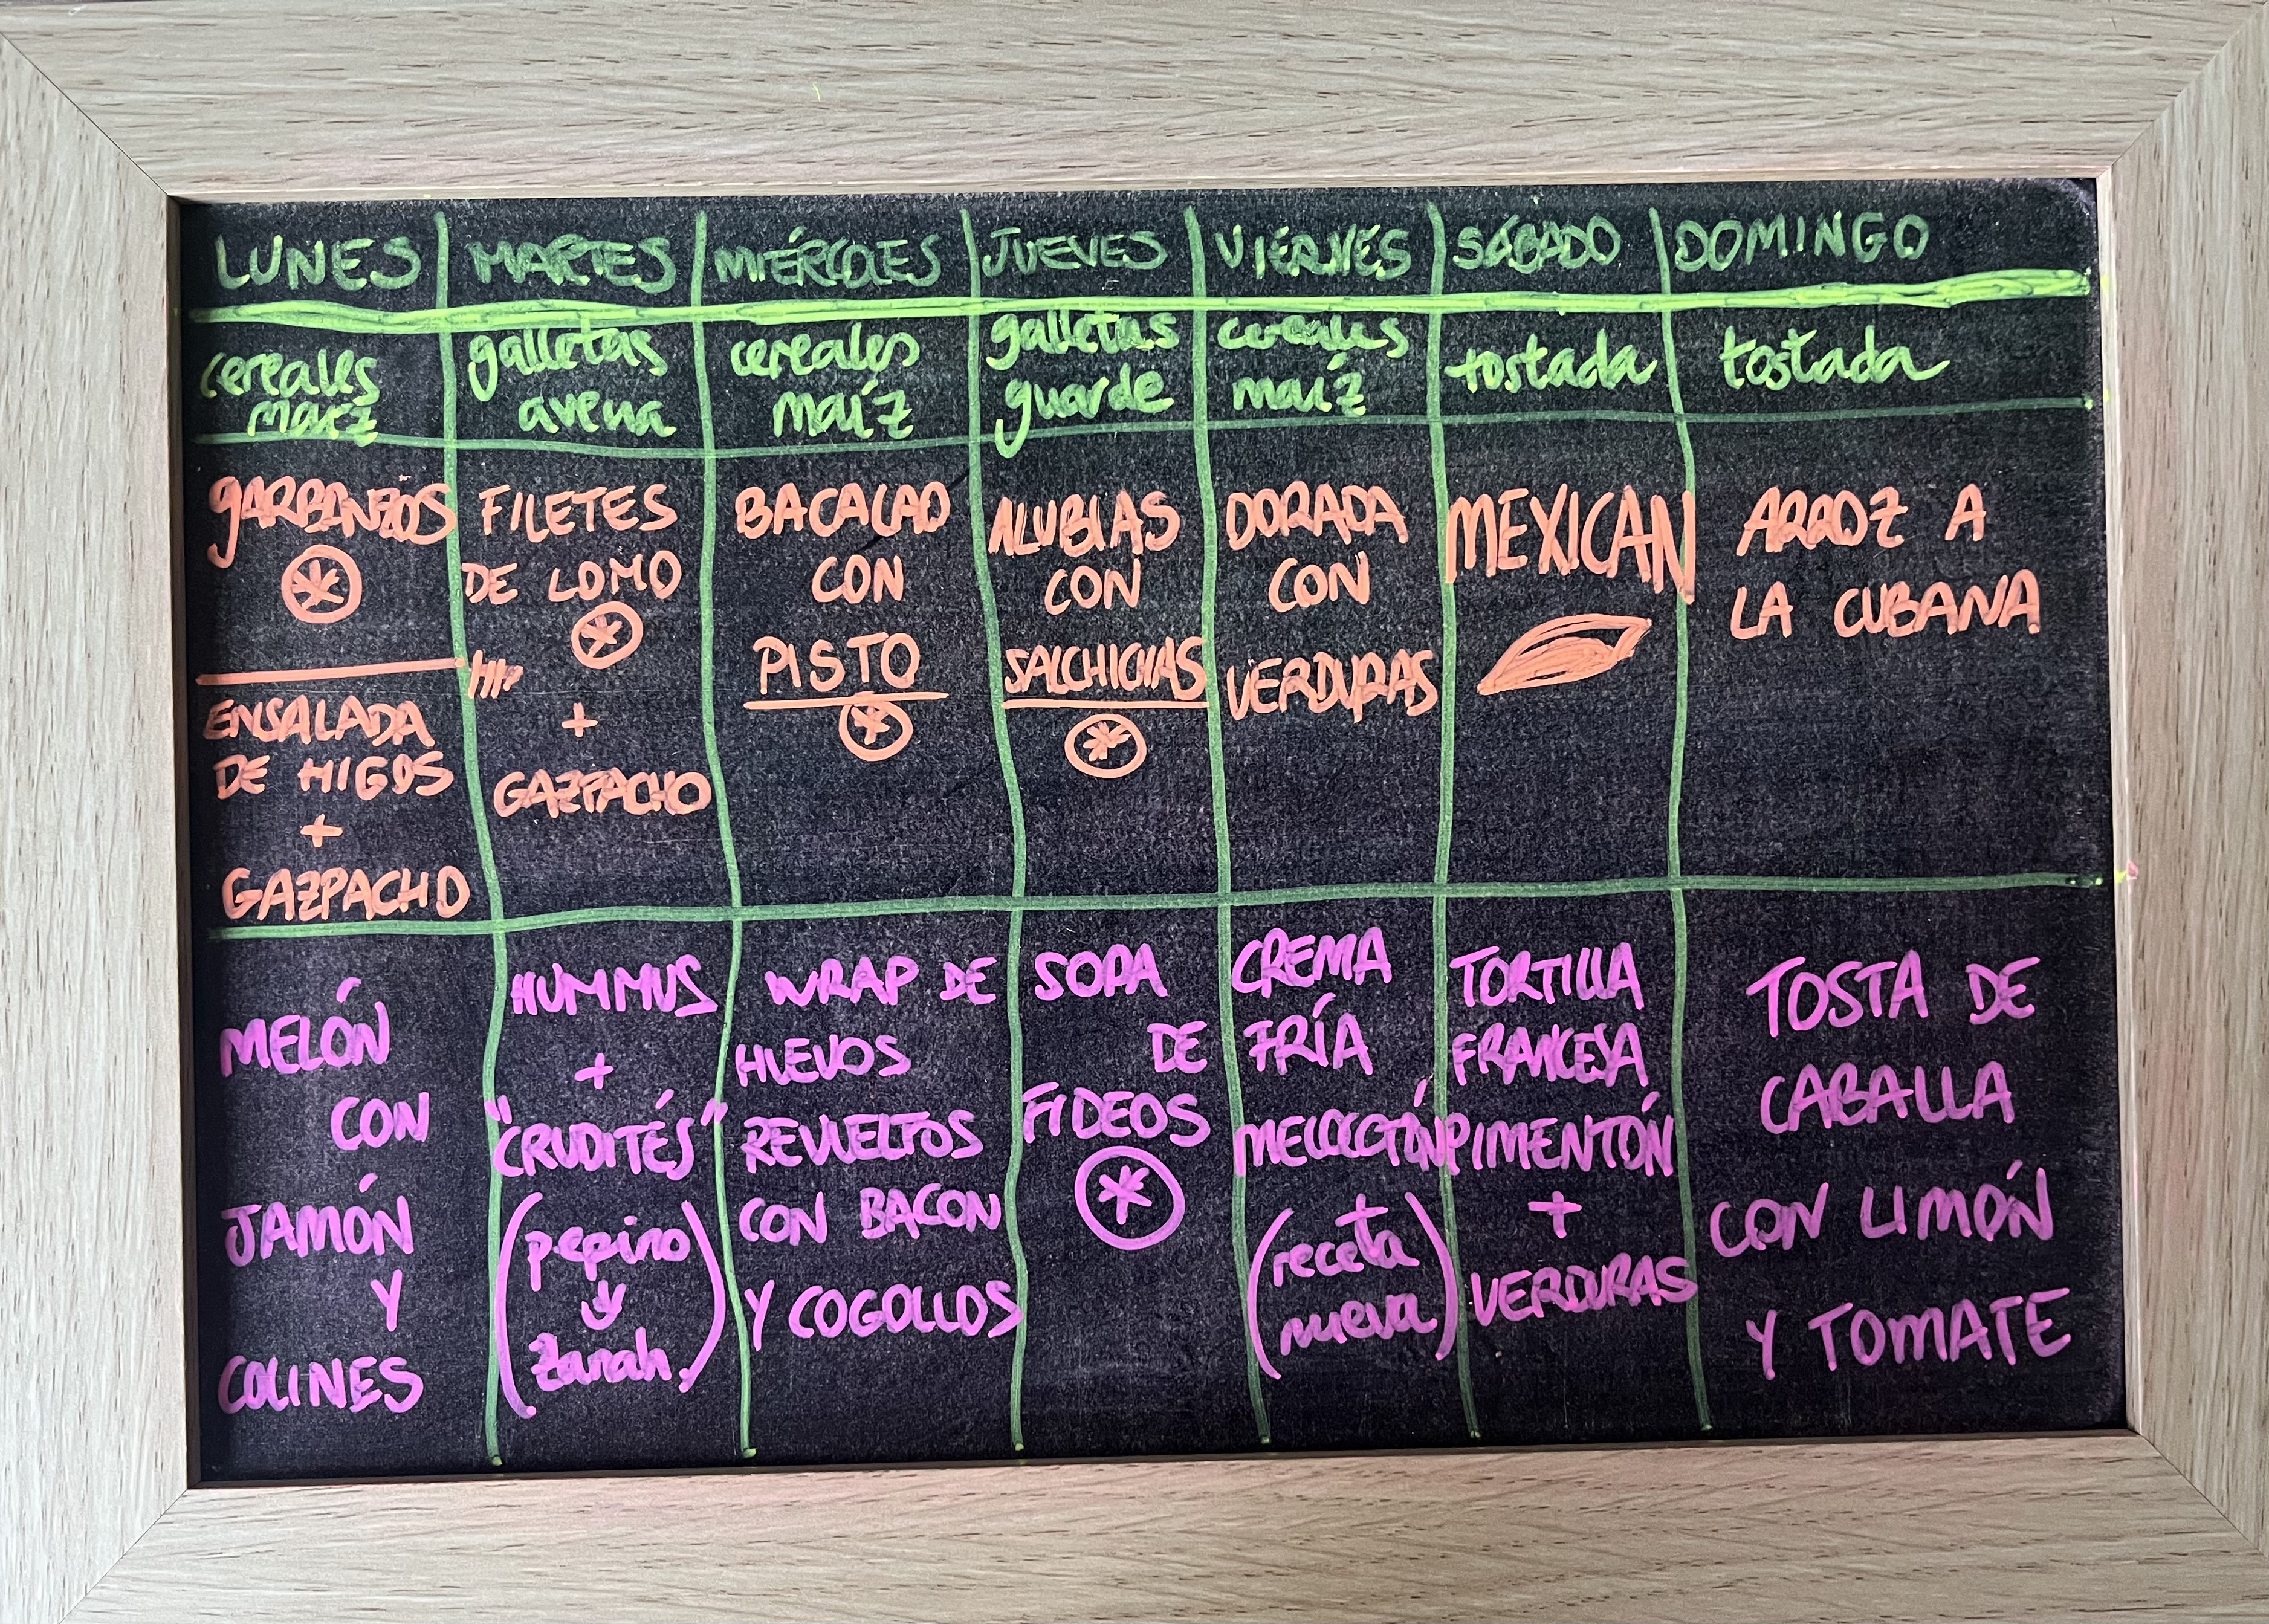 LUNES MARTES MIÉRCOLES JUEVES VIERNES SÁBADO DOMINGO
cereales
maíz
galletas
avena
cereales
maíz
galletas
guarde
cereales
maíz
tostada
tostada
GARBANZOS
ENSALADA
DE HIGOS
+
GAZPACHO
FILETES
DE LOMO
+
GAZPACHO
BACALAO
CON
PISTO
ALUBIAS
CON
SALCHICHAS
DORADA
CON
VERDURAS
MEXICAN
ARROZ A
LA CUBANA
MELÓN
CON
JAMÓN
Y
COLINES
HUMMUS
+
"CRUDITÉS"
(pepino
y
zanah.)
WRAP DE
HUEVOS
REVUELTOS
CON BACON
Y COGOLLOS
SOPA
DE
FIDEOS
CREMA
FRÍA
MELOCOTÓN
(receta
nueva)
TORTILLA
FRANCESA
PIMENTÓN
+
VERDURAS
TOSTA DE
CABALLA
CON LIMÓN
Y TOMATE